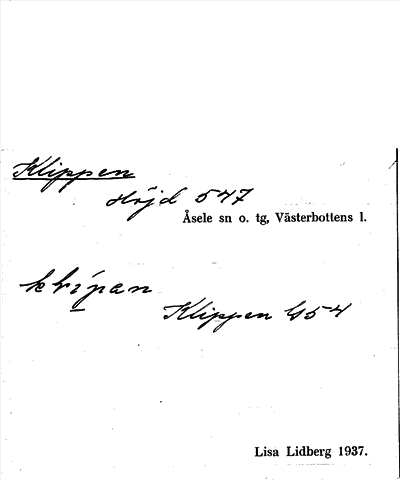 Klippen
Höjd 547
Åsele sn o. tg, Västerbottens l.
Klippen G54
Lisa Lidberg 1937.